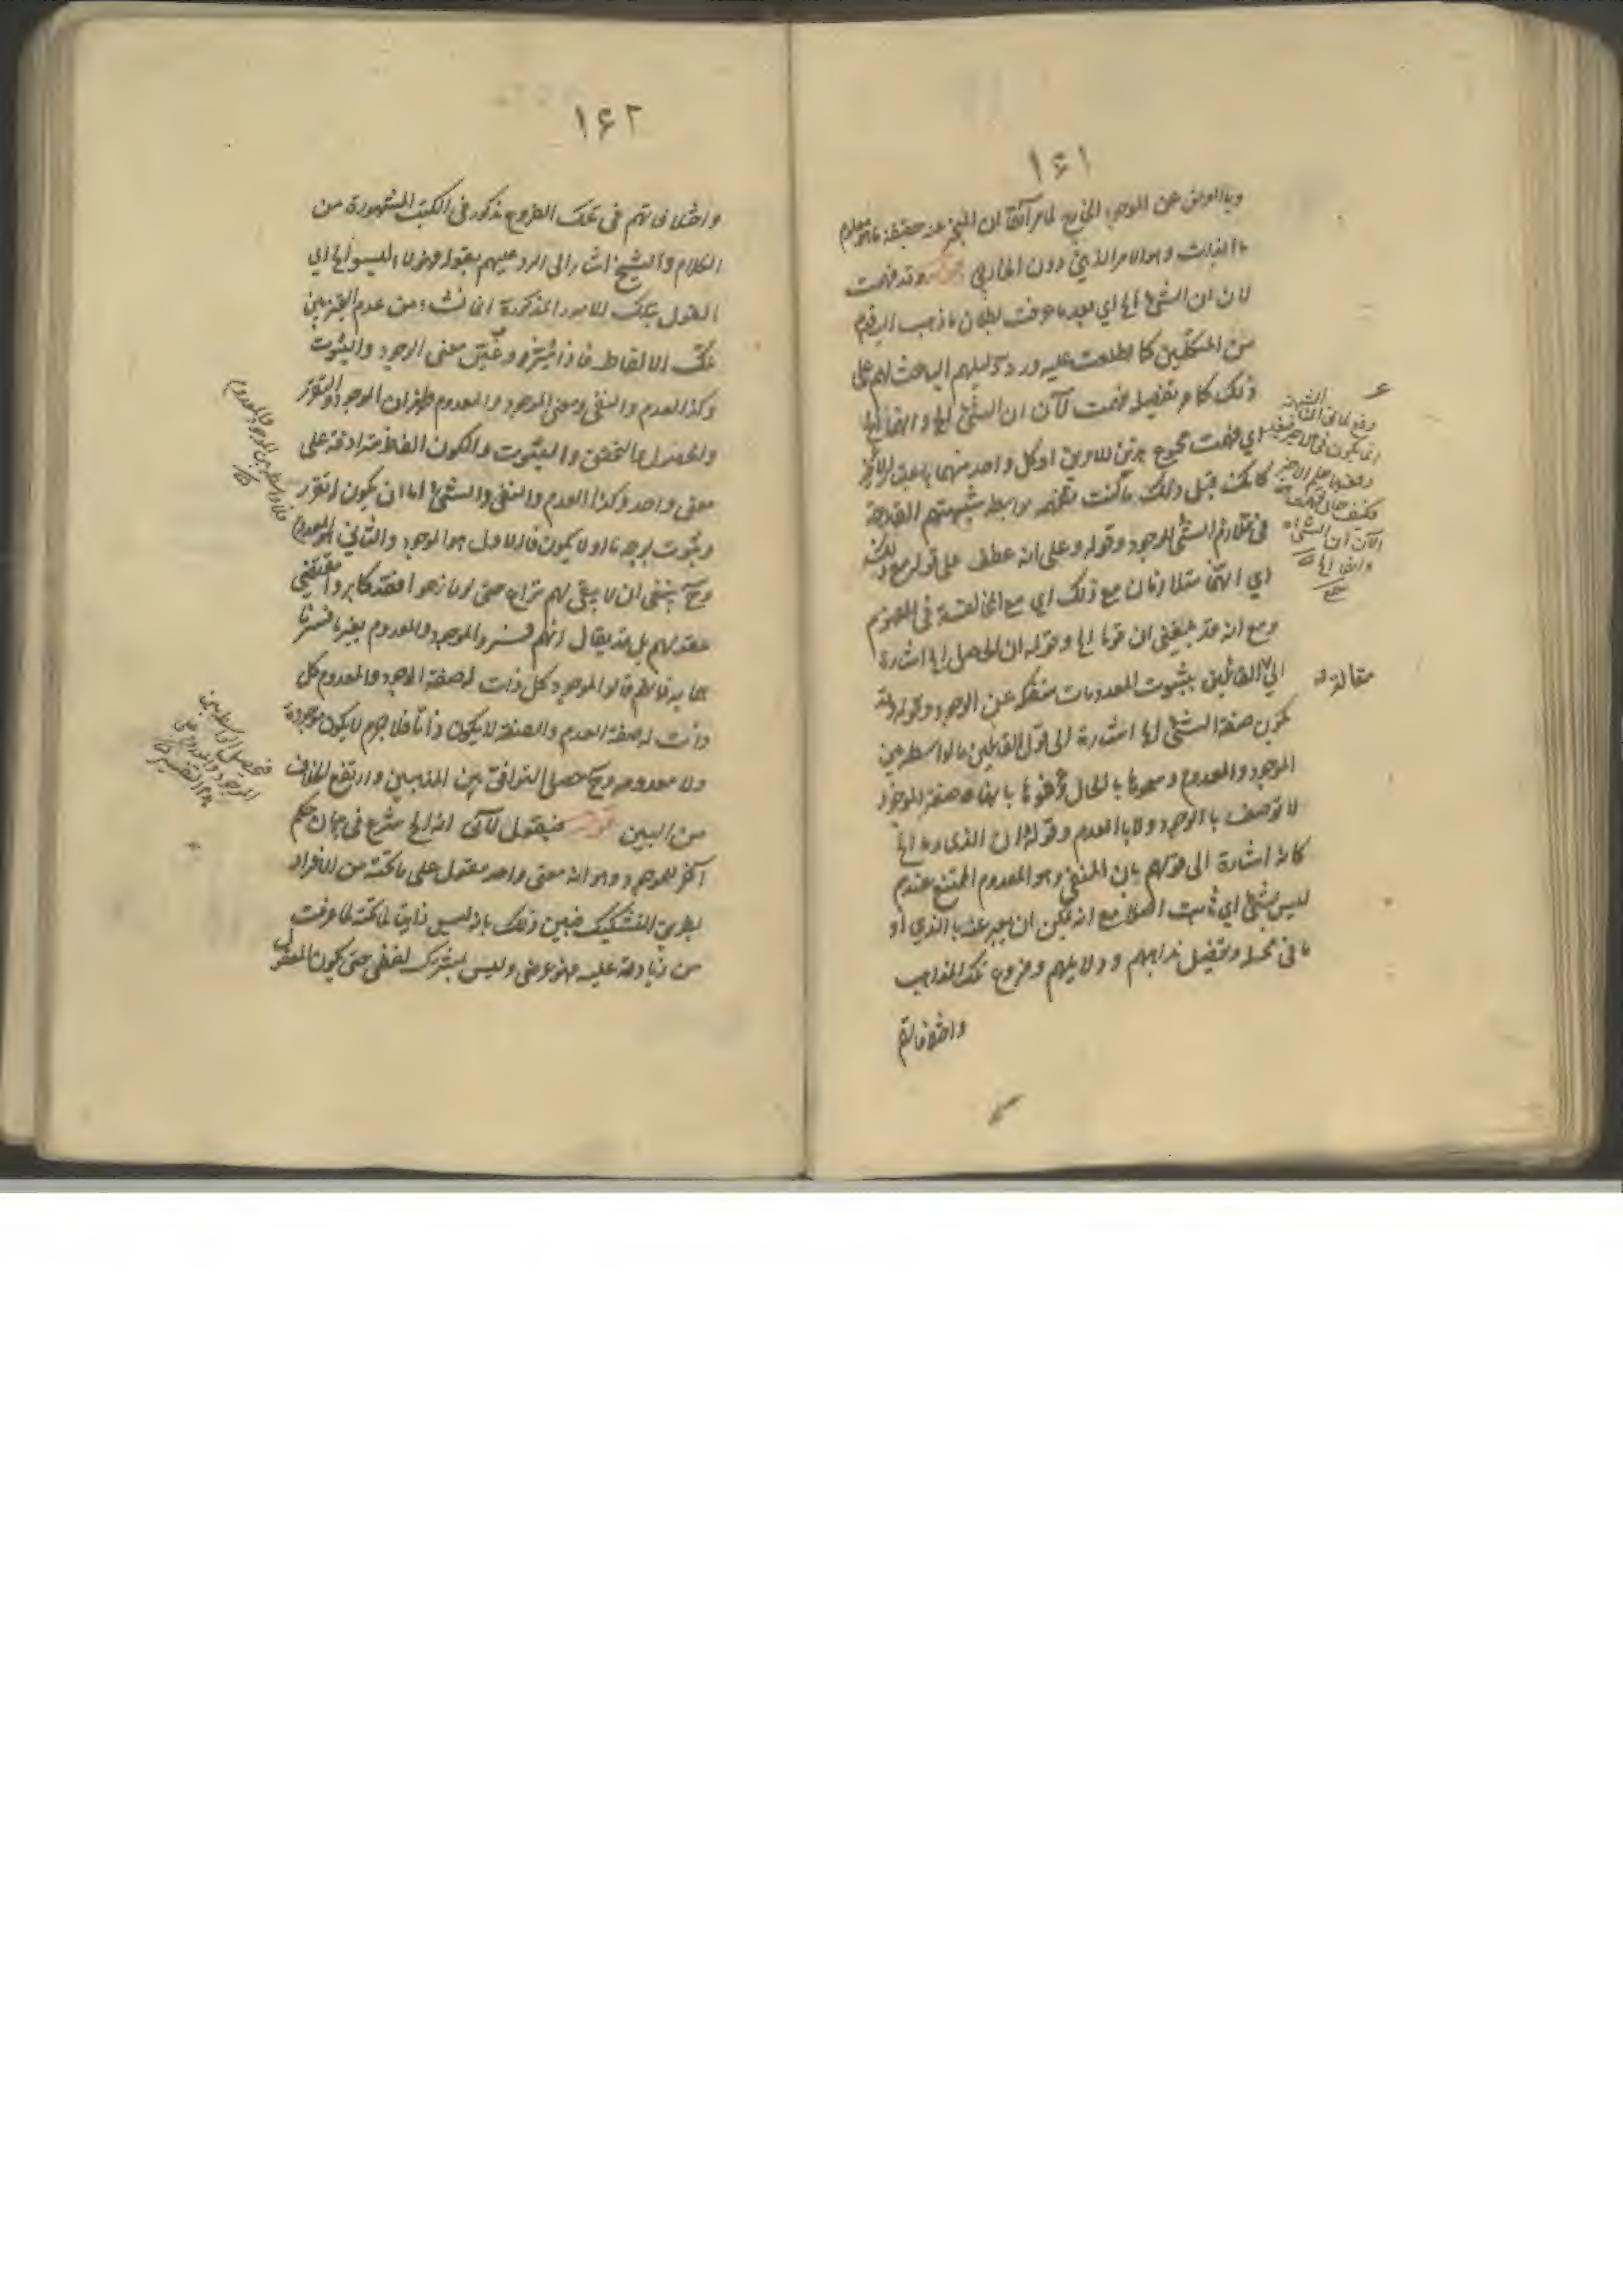 ١٦١
وبالعرض عن الموجود الخارجي لما مر آنفا ان المخبر عنه حقيقة ما هو معلوم
بالذات وهو الامر الذهني دون الخارجي قوله وقد فهمت
لان ان الشيء الخ اي بعد ما عرفت بطلان ما ذهب اليه قوم
من المتكلمين كما اطلعت عليه ورد دليلهم الباعث لهم على
ذلك كما مر تفصيله فهمت الآن ان الشيء الخ والفاء
اي فهمت مجموع هذين الامرين او كل واحد منهما
كما كنت قبل ذلك ما كنت تفهمه بواسطة شبهتهم القادحة
في تلازم الشيء الموجود وقوله وعلى انه عطف على قوله مع ذلك
اي انهما متلازمان مع ذلك اي مع المخالفة في المفهوم
ومع انه قد بلغني ان قوما الخ وقوله ان الحاصل الخ اشارة
الى القائلين بثبوت المعدومات منفكة عن الوجود وقوله وقد
يكون صفة الشيء الخ اشارة الى قول القائلين بالواسطة بين
الموجود والمعدوم وسموها بالحال وعرفوها بانها صفة الموجود
لا توصف بالوجود ولا بالعدم وقوله ان الذي وما الخ
كانه اشارة الى قولهم بان المنفي وهو المعدوم الممتنع عندهم
ليس بشيء اي ثابت اصلا مع انه يمكن ان يعبر عنه بالذي او
ما في محله وتفصيل مذاهبهم ودلايلهم وفروع تلك المذاهب
واختلافاتهم
مقالة
الآن ان الشيء
١٦٢
واختلافاتهم في تلك الفروع مذكور في الكتب المشهورة من
الكلام والشيخ اشار الى الرد عليهم بقوله وهؤلاء ليسوا الخ اي
القول بتلك الامور المذكورة انما نشاء من عدم التمييز بين
تلك الالفاظ فاذا ميز وعين معنى الوجود والثبوت
وكذا العدم والنفي ومعنى الموجود والمعدوم ظهر ان الوجود والتقرر
والحصول والتحقق والثبوت والكون الفاظ مترادفة على
معنى واحد وكذا العدم والنفي والشيء اما ان يكون له تقرر
وثبوت بوجه ما او لا يكون فالاول هو الموجود والثاني المعدوم
وح ينبغي ان لا يبقى لهم نزاع حتى لو نازعوا فقد كابروا مقتضى
عقولهم بل قد يقال انهم فسروا الموجود والمعدوم بغير ما فسرنا
هما به فانهم قالوا الموجود كل ذات له صفة الوجود والمعدوم كل
ذات له صفة العدم والصفة لا يكون ذاتا فلا جرم لا يكون موجودة
ولا معدومة وح حصل التوافق بين المذهبين وارتفع الخلاف
من البين قوله فنقول الآن انه الخ شرع في بيان حكم
آخر للموجود وهو انه معنى واحد مقول على ما تحته من الافراد
بطريق التشكيك فبين ذلك بانه ليس ذاتيا لما تحته لما عرفت
من زيادته عليه فهو عرضي وليس بمشترك لفظي حتى يكون المقول
فلا واسطة بين الموجود والمعدوم
فيحصل الواسطة بين
الموجود والمعدوم على
هذا التفسير